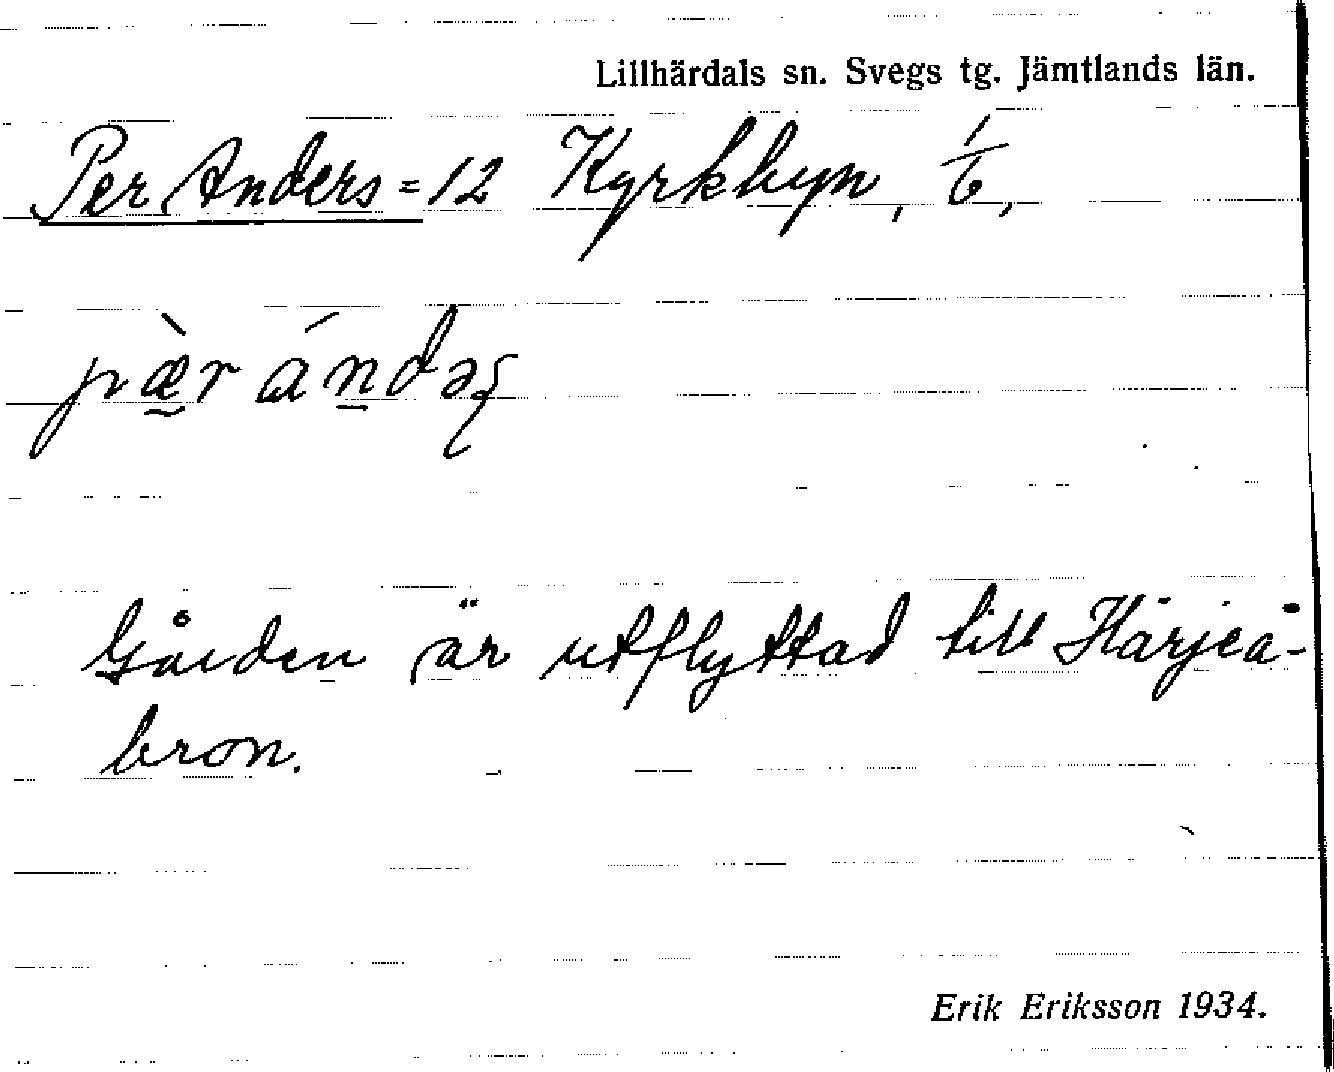 Lillhärdals sn. Svegs tg. Jämtlands län.
Per Anders = 12 Kyrkbyn, 1/6,
pæ̀r ándəʂ
Gården är utflyttad till Härjeå-
bron.
Erik Eriksson 1934.